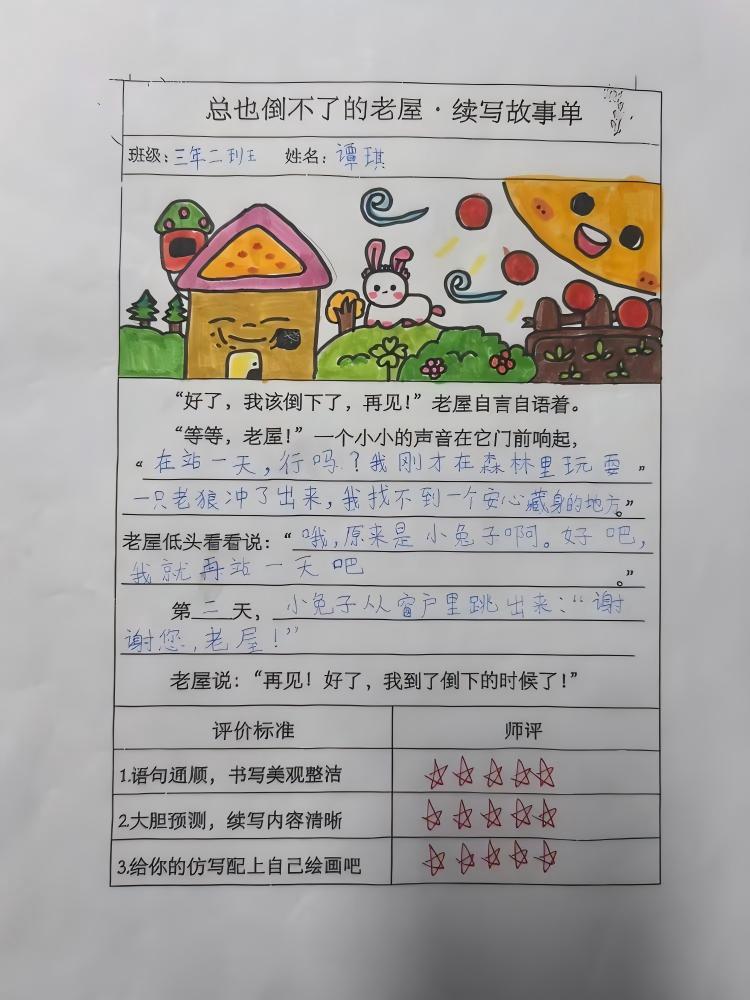 总也倒不了的老屋·续写故事单
班级：三年二班 姓名：谭琪
“好了，我该倒下了，再见！”老屋自言自语着。
“等等，老屋！”一个小小的声音在它门前响起，
“在站一天，行吗？我刚才在森林里玩耍”
一只老狼冲了出来，我找不到一个安心藏身的地方。”
老屋低头看看说：“哦，原来是小兔子啊。好吧，
我就再站一天吧。”
第二天，小兔子从窗户里跳出来：“谢
谢您，老屋！”
老屋说：“再见！好了，我到了倒下的时候了！”
评价标准 师评
1.语句通顺，书写美观整洁 ☆☆☆☆☆
2.大胆预测，续写内容清晰 ☆☆☆☆☆
3.给你的仿写配上自己绘画吧 ☆☆☆☆☆